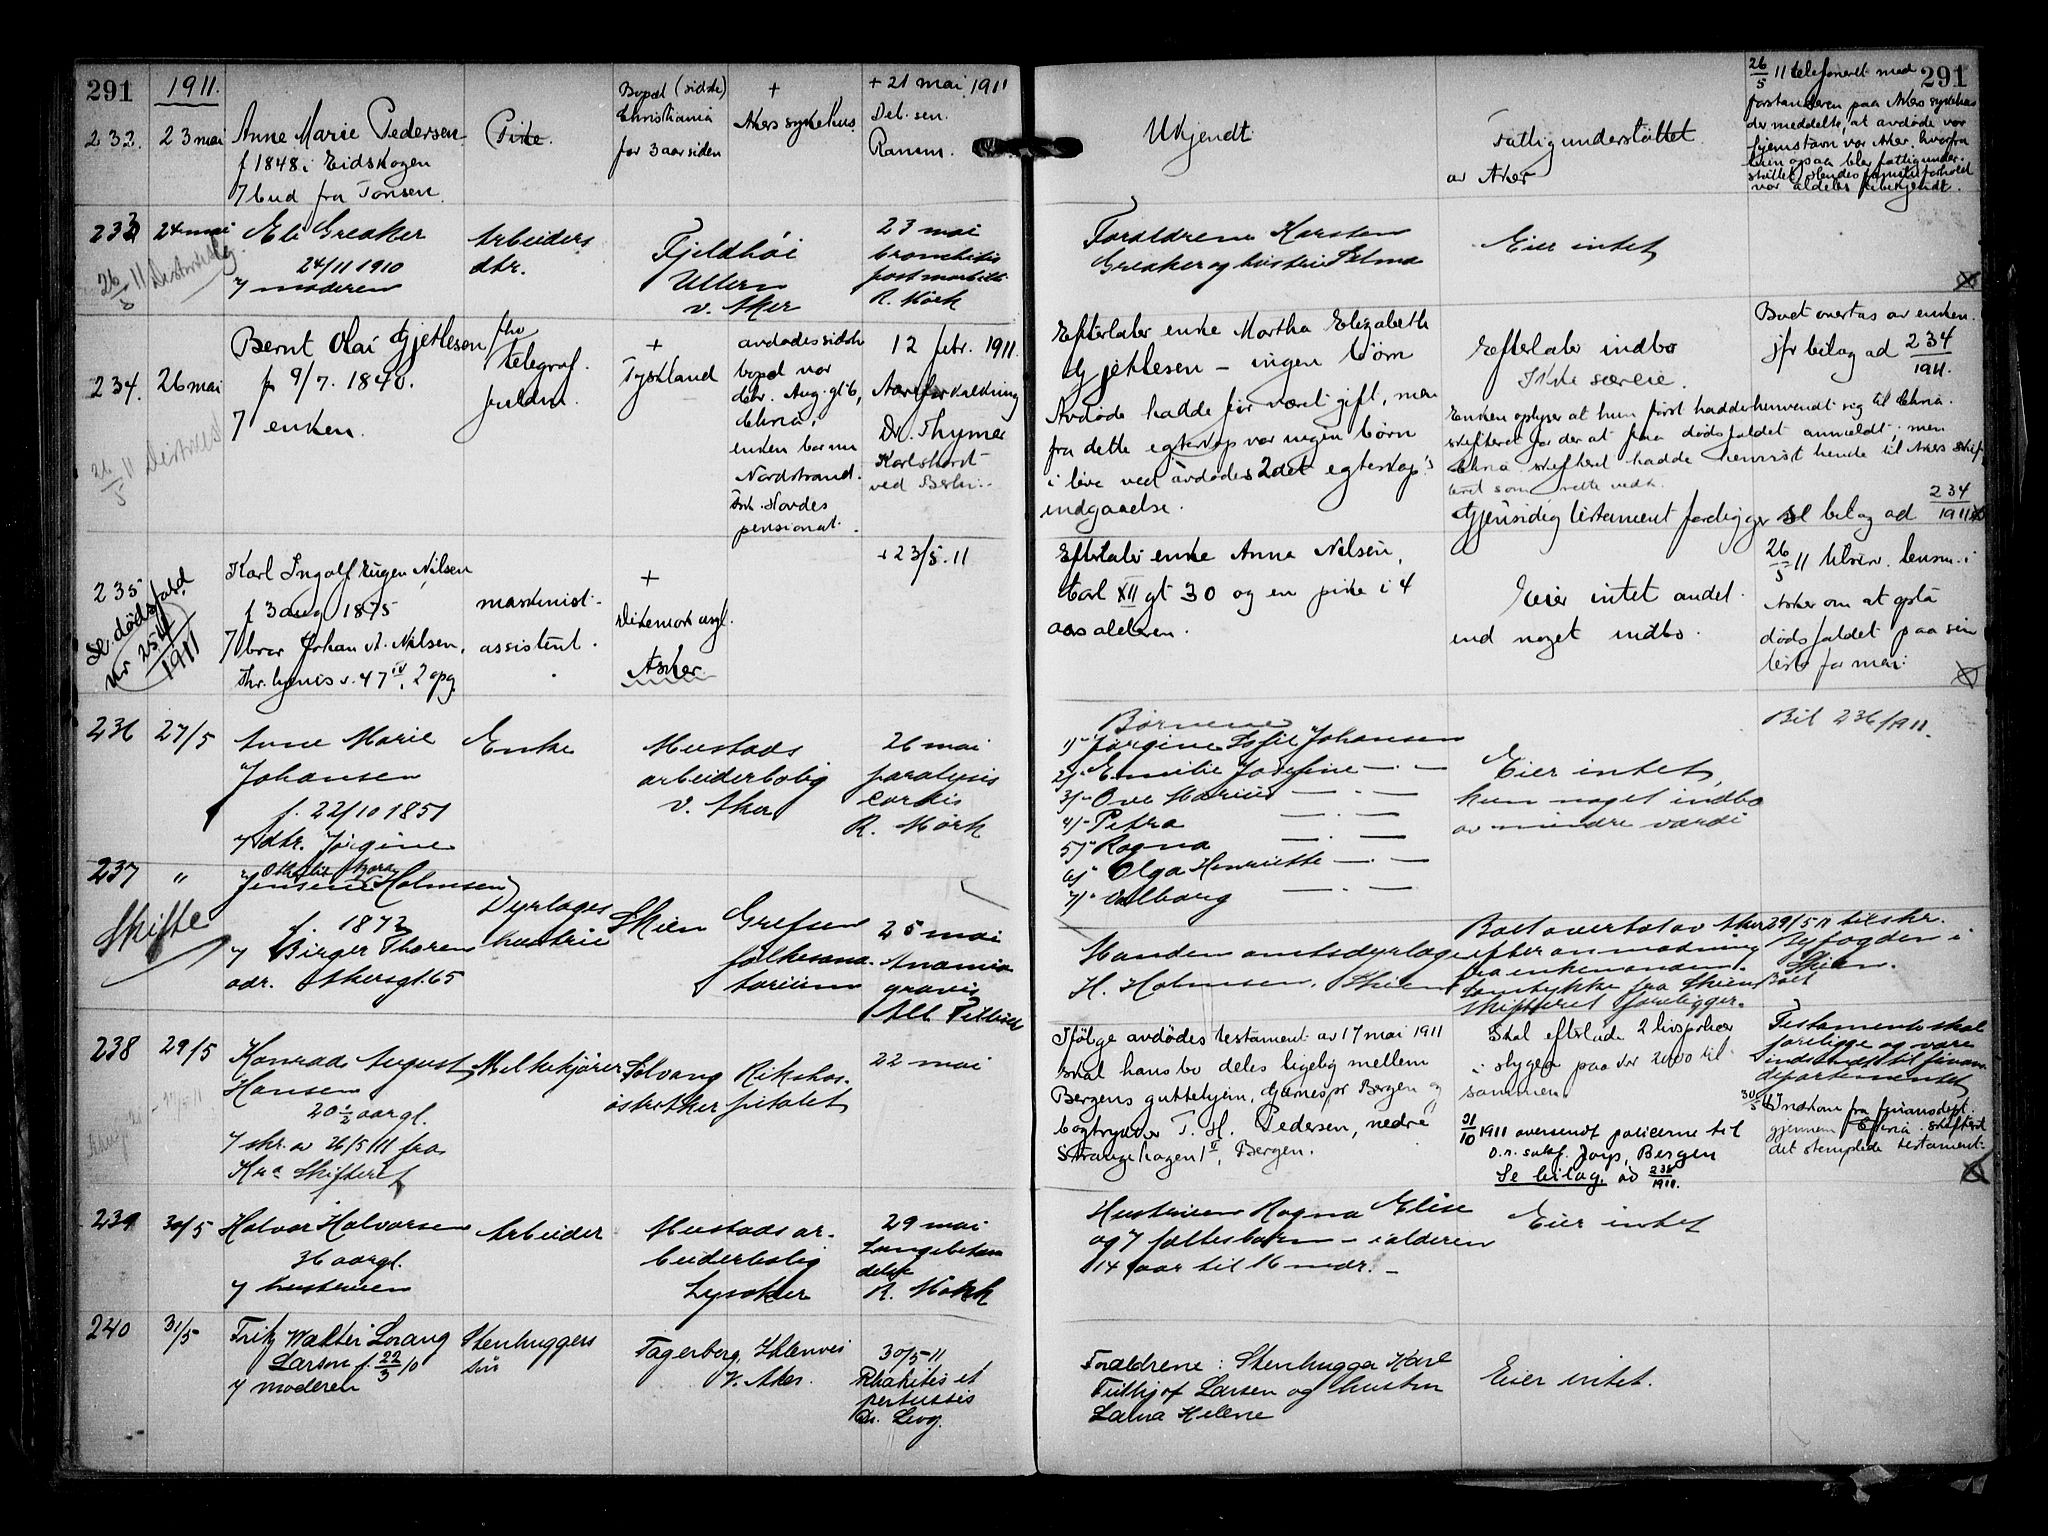 291
1911.
232.
23 mai
Anne Marie Pedersen
f 1848 i Eidskogen
7 bud fra Tonsen.
Pike.
Bopæl (sidste)
Christiania
for 3 aar siden
+
Akers sykehus.
+ 21 mai 1911
Deb. sen.
Ransm.
Ukjendt.
Fattigunderstøttet
av Aker
291
26/5 11 telefoneret med
forstanderen paa Akers sykehus
der meddelte, at avdøde var
hjemstavn var Aker, hvorfra
hun ogsaa blev fattigunder-
støttet, hendes familieforhold
var aldeles ubekjendt.
233
24 mai
Eli Greaker
24/11 1910
7 moderen
26/5 11
Arbeiders
dtr.
Fjeldhøi
Ullern
v. Aker
23 mai
bronchitis
post morbilli
R. Mørk
Forældrene Karsten
Greaker og hustru Selma
Eier intet
234.
26 mai
26/5 11
Bernt Olai Gjetlesen
f 9/7. 1840.
7 enken.
fhv
telegraf.
fuldm.
+
Tyskland
avdødes sidste
bopæl var
dtr. Aug. gt 6,
Chria,
enken bor nu
Nordstrand.
Nordes
pensionat.
12 febr. 1911.
Aareforkalkning
Dr. Thymer
Karlshorst
ved Berlin.
Efterlater enke Martha Elizabeth
Gjetlesen – ingen børn
Avdøde hadde før været gift, men
fra dette egteskap var ingen børn
i live ved avdødes 2det egteskap's
indgaaelse.
Efterlater indbo
Ikke særeie.
Boet overtas av enken.
jfr bilag ad 234/1911.
Enken oplyser at hun først hadde henvendt sig til Chria.
skifteret for der at faa dødsfaldet anmeldt, men
Chria skifteret hadde henvist hende til Akers skif-
teret som rette vedk.
Gjensidig testament foreligger se bilag ad 234/1911
235
Se dødsfald
nr 254/1911
Karl Ingolf Eugen Nilsen
f 3 aug 1875
7 bror Johan A. Nilsen,
Thr. Meyers g. 47 IV, 2 opg.
maskinist-
assistent.
+
Dikemark asyl.
Asker.
+ 23/5. 11
Efterlater enke Anna Nilsen,
Carl XII gt 30 og en pike i 4
aars alderen.
Eier intet andet
end noget indbo.
26/5 11 tilskr. lensm. i
Asker om at opta
dødsfaldet paa sin
liste for mai.
236
27/5
Anne Marie
Johansen
f. 22/10 1851
7 dtr. Jørgine
Enke
Mustads
arbeiderbolig
v. Aker
26 mai
paralysis
cordis
R. Mørk
Børnene
1) Jørgine Sofie Johansen
2) Emilie Josefine — " —
3) Ove Marius — " —
4) Petra — " —
5) Ragna — " —
6) Olga Henriette — " —
7) Valborg — " —
Eier intet,
kun noget indbo
av mindre værdi
Bil 236/1911.
237
"
Skifte
Othilie Thora
Jensine Holmsen
f. 1872
7 Birger Thoren
adr. Akersgt. 65
Dyrlæges
hustru
Skien
Grefsen
folkesana-
torium
25 mai
Anæmia
gravis
Manden amtsdyrlæge
H. Holmsen, Skien
Boet overtat av Aker
efter anmodning
fra enkemanden.
Samtykke fra Skien
skifteret foreligger.
29/5 11 tilskr.
Byfogden i
Skien.
238
29/5
Konrad August
Hansen
20 1/2 aar gl.
7 skr. av 26/5 11 fra
Kra Skifteret
Melkekjører
Solvang
Østre Aker
Rikshos-
pitalet
22 mai
Ifølge avdødes testament av 17 mai 1911
skal hans bo deles ligelig mellem
Bergens guttehjem, Bergen og
bogtrykker T. H. Pedersen, nedre
Strangehagen 1 II, Bergen.
Skal efterlate 2 livspoliser
i paa kr 2000 til
sammen
31/10 1911 oversendt policerne til
o.r. sakf. Joys, Bergen
Se bilag. ad 238/1911.
Testamente skal
foreligge og være
indsendt til finans
departementet
30/5 Indkom fra finansdept.
gjennem Chria. skifteret
det stemplede testament.
239
30/5
Halvor Halvorsen
36 aar gl.
7 hustruen
Arbeider
Mustads ar-
beiderbolig
Lysaker
29 mai
Lungebetæn
delse
R. Mørk
Hustruen Ragna Elise
og 7 fællesbarn – i alderen
14 aar til 16 mdr. –
Eier intet
240
31/5
Fritz Walter Lorang
Larsen f. 22/3 10
7 moderen
Stenhuggers
søn
Fagerberg,
V. Aker.
30/5 11
Rhakitis et
pertussis
Dr. Skog.
Forældrene: Stenhugger Karl
Fritjof Larsen og hustru
Laura Helene
Eier intet.